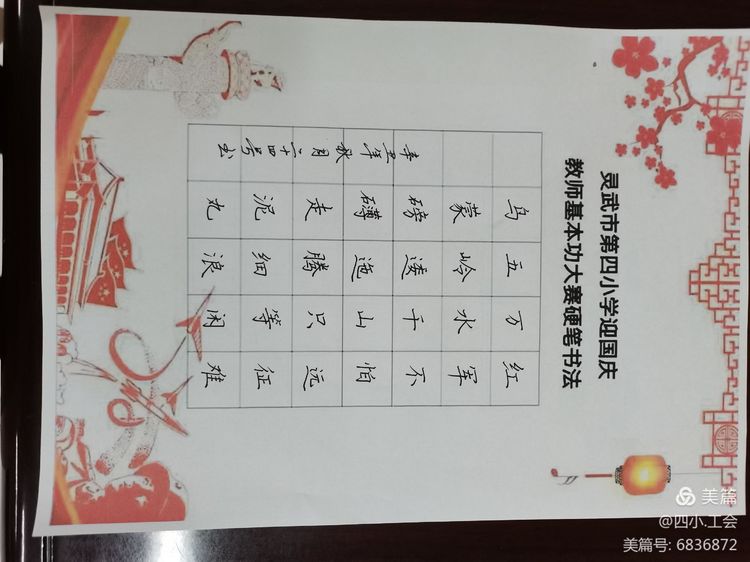 灵武市第四小学迎国庆
教师基本功大赛硬笔书法
红军不怕远征难
万水千山只等闲
五岭逶迤腾细浪
乌蒙磅礴走泥丸
辛丑年秋月二十四号书
美篇
@四小.工会
美篇号: 6836872